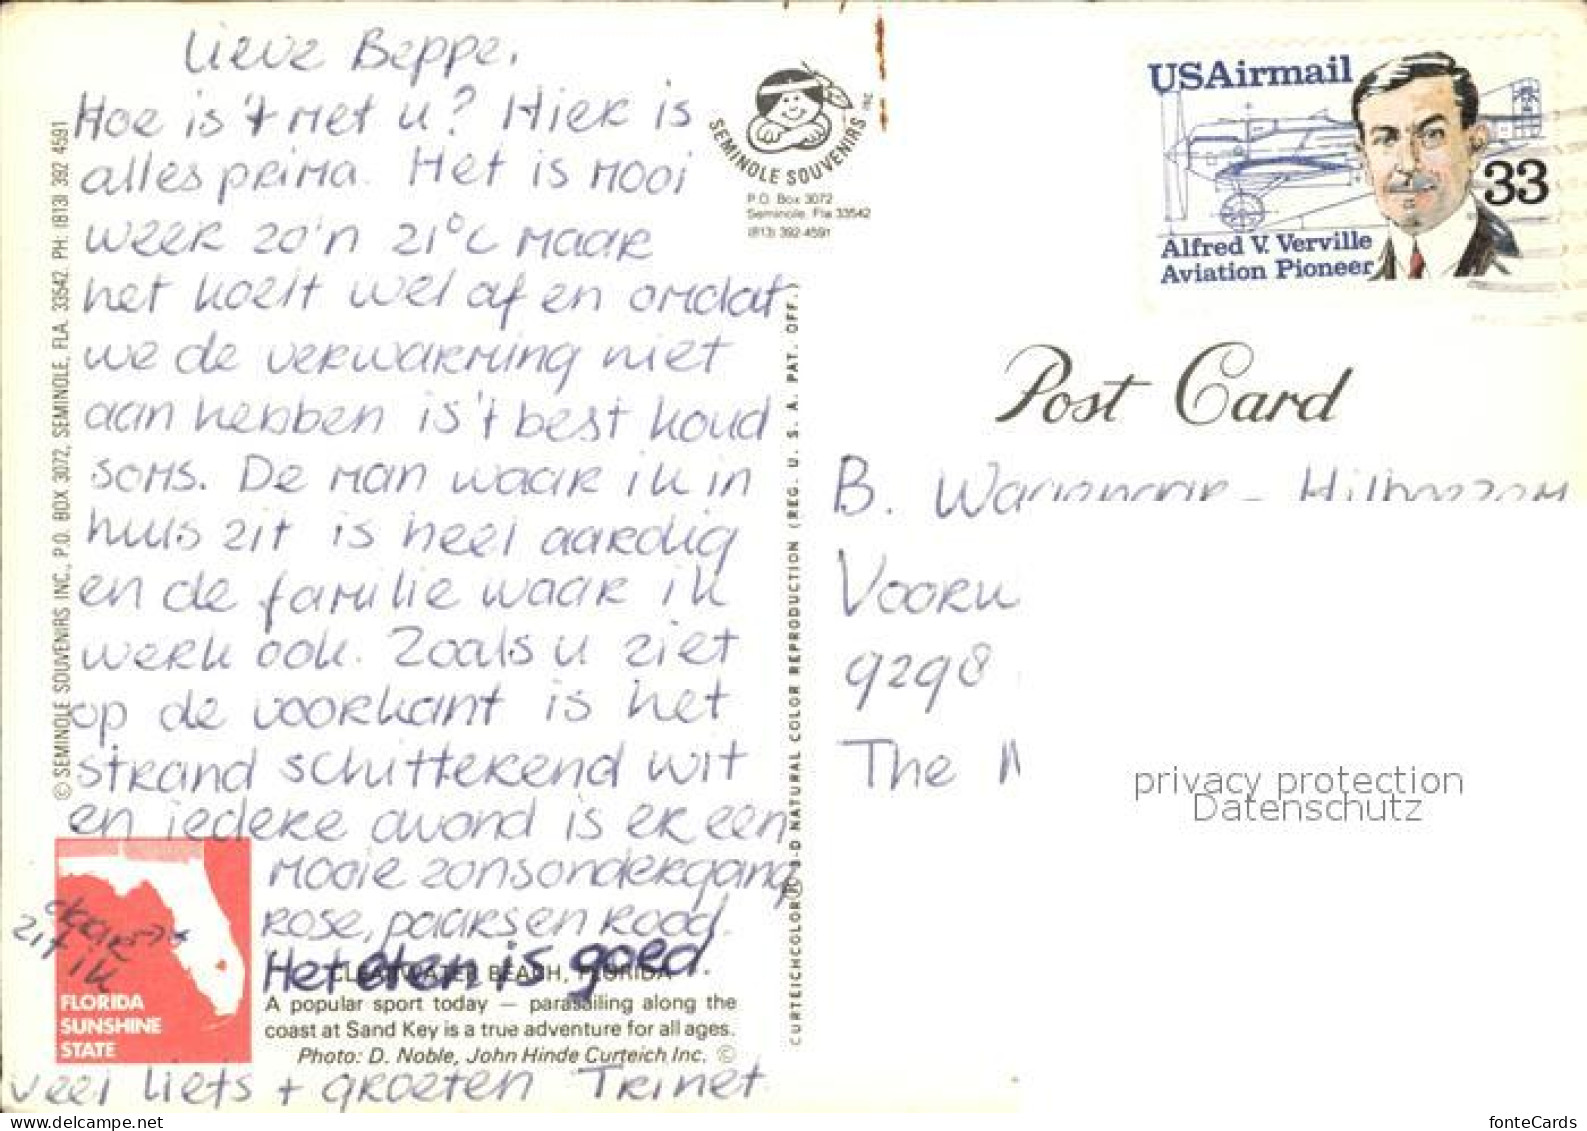 Lieve Beppe,
Hoe is 't met u? Hier is
alles prima. Het is mooi
weer zo'n 21°C maar
het koelt wel af en omdat
we de verwarming niet
aan hebben is 't best koud
soms. De man waar ik in
huis zit is heel aardig
en de familie waar ik
werk ook. Zoals u ziet
op de voorkant is het
strand schitterend wit
en iedere avond is er een
mooie zonsondergang
rose, paars en rood.
Het eten is goed.
daar →
zit
ik
veel liefs + groeten Trinet
FLORIDA
SUNSHINE
STATE
CLEARWATER BEACH, FLORIDA
A popular sport today — parasailing along the
coast at Sand Key is a true adventure for all ages.
Photo: D. Noble, John Hinde Curteich Inc. ©
© SEMINOLE SOUVENIRS INC., P.O. BOX 3072, SEMINOLE, FLA. 33542 PH: (813) 392 4591
SEMINOLE SOUVENIRS INC.
P.O. Box 3072
Seminole, Fla 33542
(813) 392-4591
CURTEICHCOLOR® 3-D NATURAL COLOR REPRODUCTION (REG. U. S. A. PAT. OFF.)
USAirmail
33
Alfred V. Verville
Aviation Pioneer
Post Card
B. Wagenaar - Hilboezem
9298
The
privacy protection
Datenschutz
delcampe.net
fonteCards